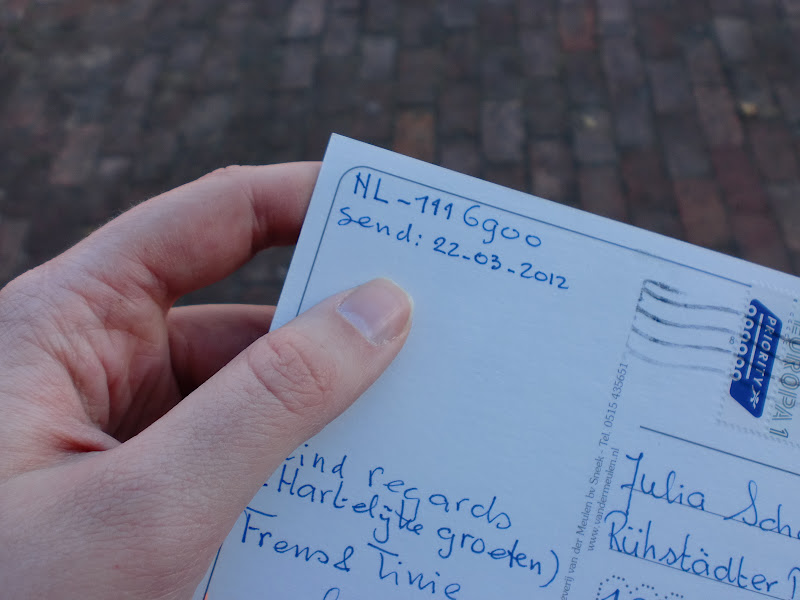 NL-1116900
send: 22-03-2012
ind regards
(Hartelijke groeten)
Frens & Tinie
everij van der Meulen bv Sneek - Tel. 0515 435651
www.vandermeulen.nl
PRIORITY
EUROPA 1
Julia Sch
Rühstädter